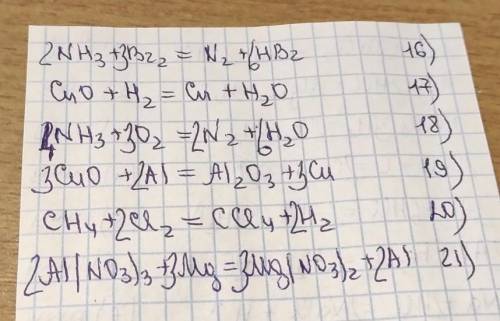 2NH₃+3Br₂ = N₂+6HBr 16)
CuO + H₂ = Cu + H₂O 17)
4NH₃+3O₂ =2N₂+6H₂O 18)
3CuO +2Al = Al₂O₃ +3Cu 19)
CH₄+2Cl₂ = CCl₄+2H₂ 20)
2Al(NO₃)₃+3Mg=3Mg(NO₃)₂+2Al 21)